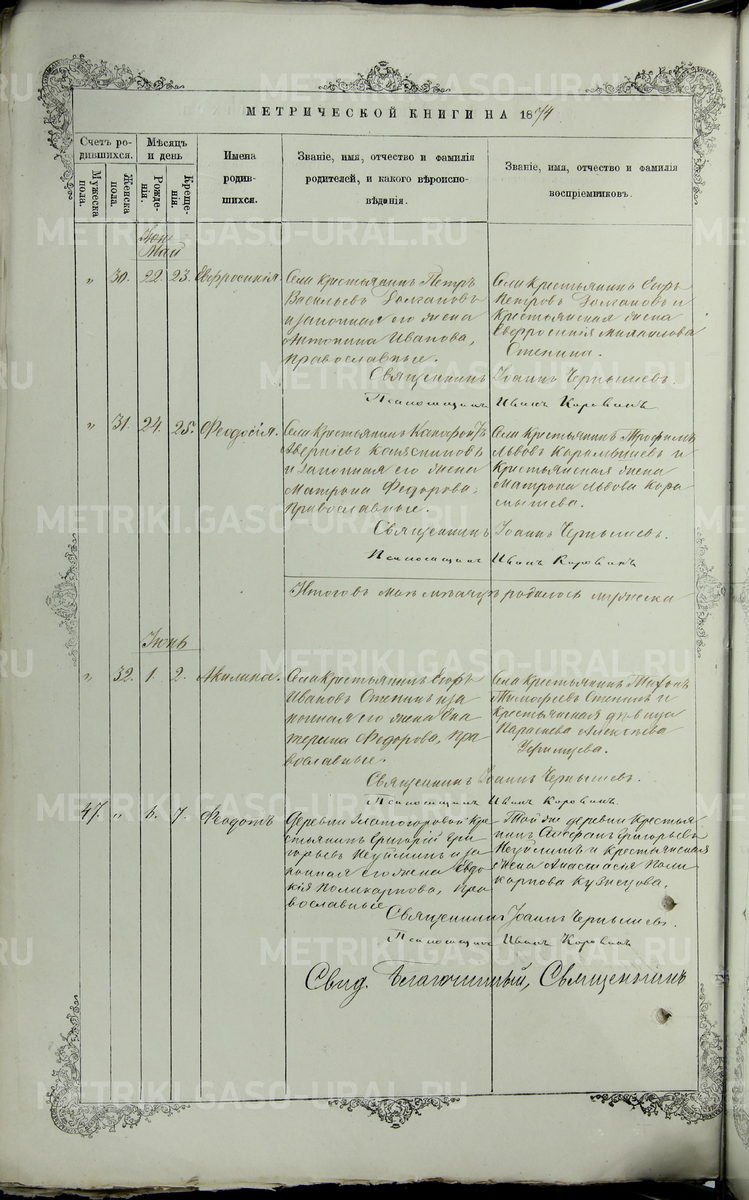 МЕТРИЧЕСКОЙ КНИГИ НА 1874
Счетъ родившихся.
Мѣсяцъ и день
Имена родившихся.
Званіе, имя, отчество и фамилія родителей, и какого вѣроисповѣданія.
Званіе, имя, отчество и фамилія воспріемниковъ.
Мужеска пола.
Женска пола.
Рожденія.
Крещенія.
Май
" 30. 22. 23. Евфросинія.
Села Крестьянинъ Петръ
Васильевъ Долгановъ
и законная его жена
Антонина Иванова,
Православные.
Села Крестьянинъ
Петровъ Долгановъ и
Крестьянская жена
Евфросинія
Стенина.
Священникъ Іоаннъ Чернышевъ.
Псаломщикъ Иванъ Коровинъ
" 31. 24. 25. Феодосія.
Села Крестьянинъ
и законная его жена
Матрона Федорова,
Православные.
Села Крестьянинъ Трофимъ
Львовъ и
Крестьянская жена
Матрона Львова Кара
мышева.
Священникъ Іоаннъ Чернышевъ.
Псаломщикъ Иванъ Коровинъ
Итого въ маѣ мѣсяцѣ родилось мужеска
Іюнь
" 32. 1. 2. Акилина.
Села Крестьянинъ Егоръ
Ивановъ Стенинъ и за
конная его жена Ека
терина Федорова, Пра
вославные.
Села Крестьянинъ
Тимофеевъ Стенинъ и
Крестьянская дѣвица
Параскева Алексѣева
Священникъ Іоаннъ Чернышевъ.
Псаломщикъ Иванъ Коровинъ
47. " 6. 7. Феодотъ
Деревни Златогоровой Кре
стьянинъ Григорій Гри
горьевъ Неуйминъ и за
конная его жена Евдо
кія Поликарпова, Пра
вославные
Той же деревни Крестья
нинъ Григорьевъ
Неуйминъ и Крестьянская
жена Анастасія Поли
карпова Кузнецова.
Священникъ Іоаннъ Чернышевъ.
Псаломщикъ Иванъ Коровинъ
Свид. Благочинный, Священникъ
METRIKI.GASO-URAL.RU